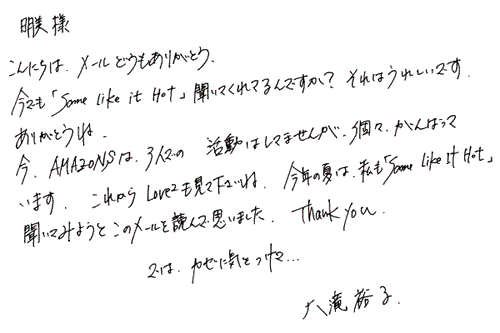 明美様
こんにちは、メールどうもありがとう。
今でも「Some Like it Hot」聞いてくれてるんですか? それはうれしいです。
ありがとうね。
今、AMAZONSは、3人での 活動はしてませんが、個々、がんばって
います。 これからLove2も見て下さいね。 今年の夏は、私も「Some Like It Hot」
聞いてみようとこのメールを読んで思いました。 Thank you.
では、カゼに気をつけて...
大滝裕子.